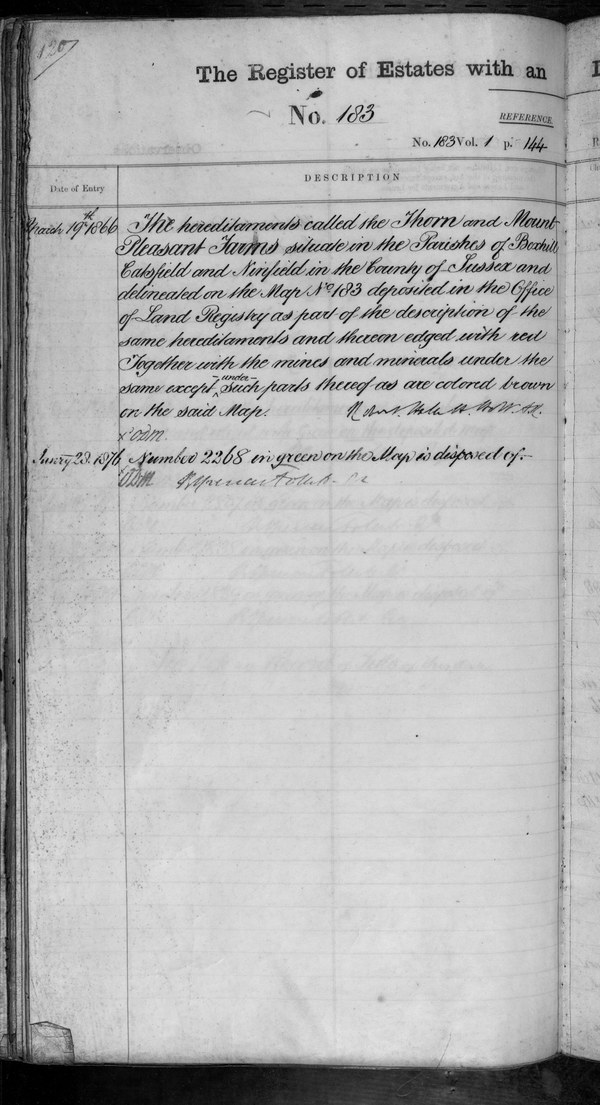 120
The Register of Estates with an
No. 183
REFERENCE.
No. 183 Vol. 1 p. 144
Date of Entry
DESCRIPTION
March 19th 1866 The hereditaments called the Thorn and Mount
Pleasant Farms situate in the Parishes of Boxhill
Catsfield and Ninfield in the County of Sussex and
delineated on the Map No 183 deposited in the Office
of Land Registry as part of the description of the
same hereditaments and thereon edged with red
Together with the mines and minerals under the
same except under such parts thereof as are colored brown
on the said Map.
1876 Number 2268 in green on the Map is disposed of.